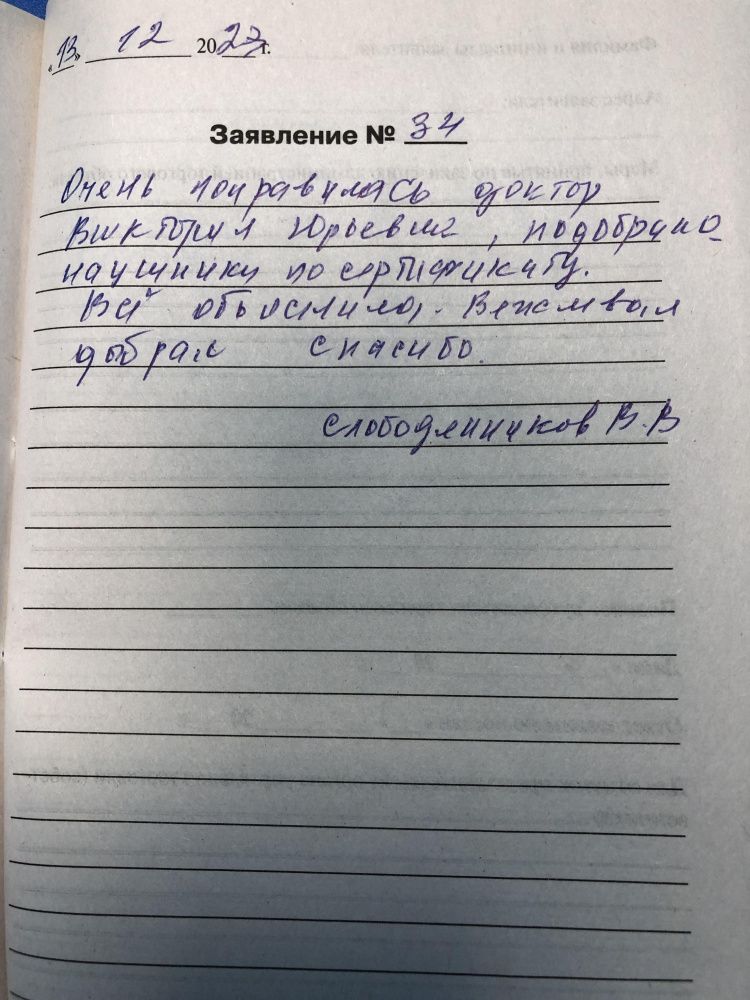 «13» 12 2023 г.
Заявление № 34
Очень понравилась доктор
Виктория Юрьевна, подобрано
наушники по сертификату.
Всё объяснила. Вежливая
добрая спасибо.
Слободянников В.В